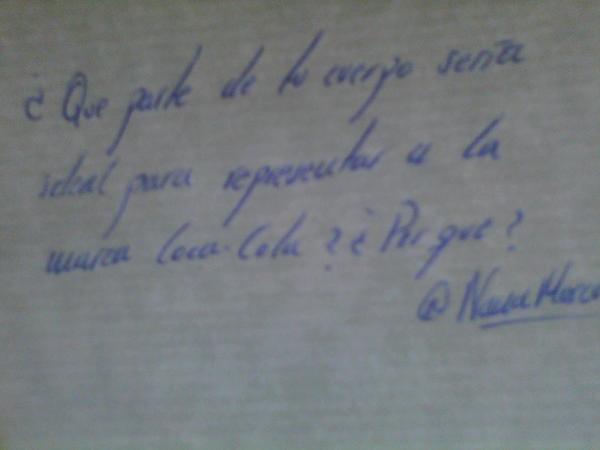 ¿Que parte de tu cuerpo sería
ideal para representar a la
marca Coca-Cola? ¿Por que?